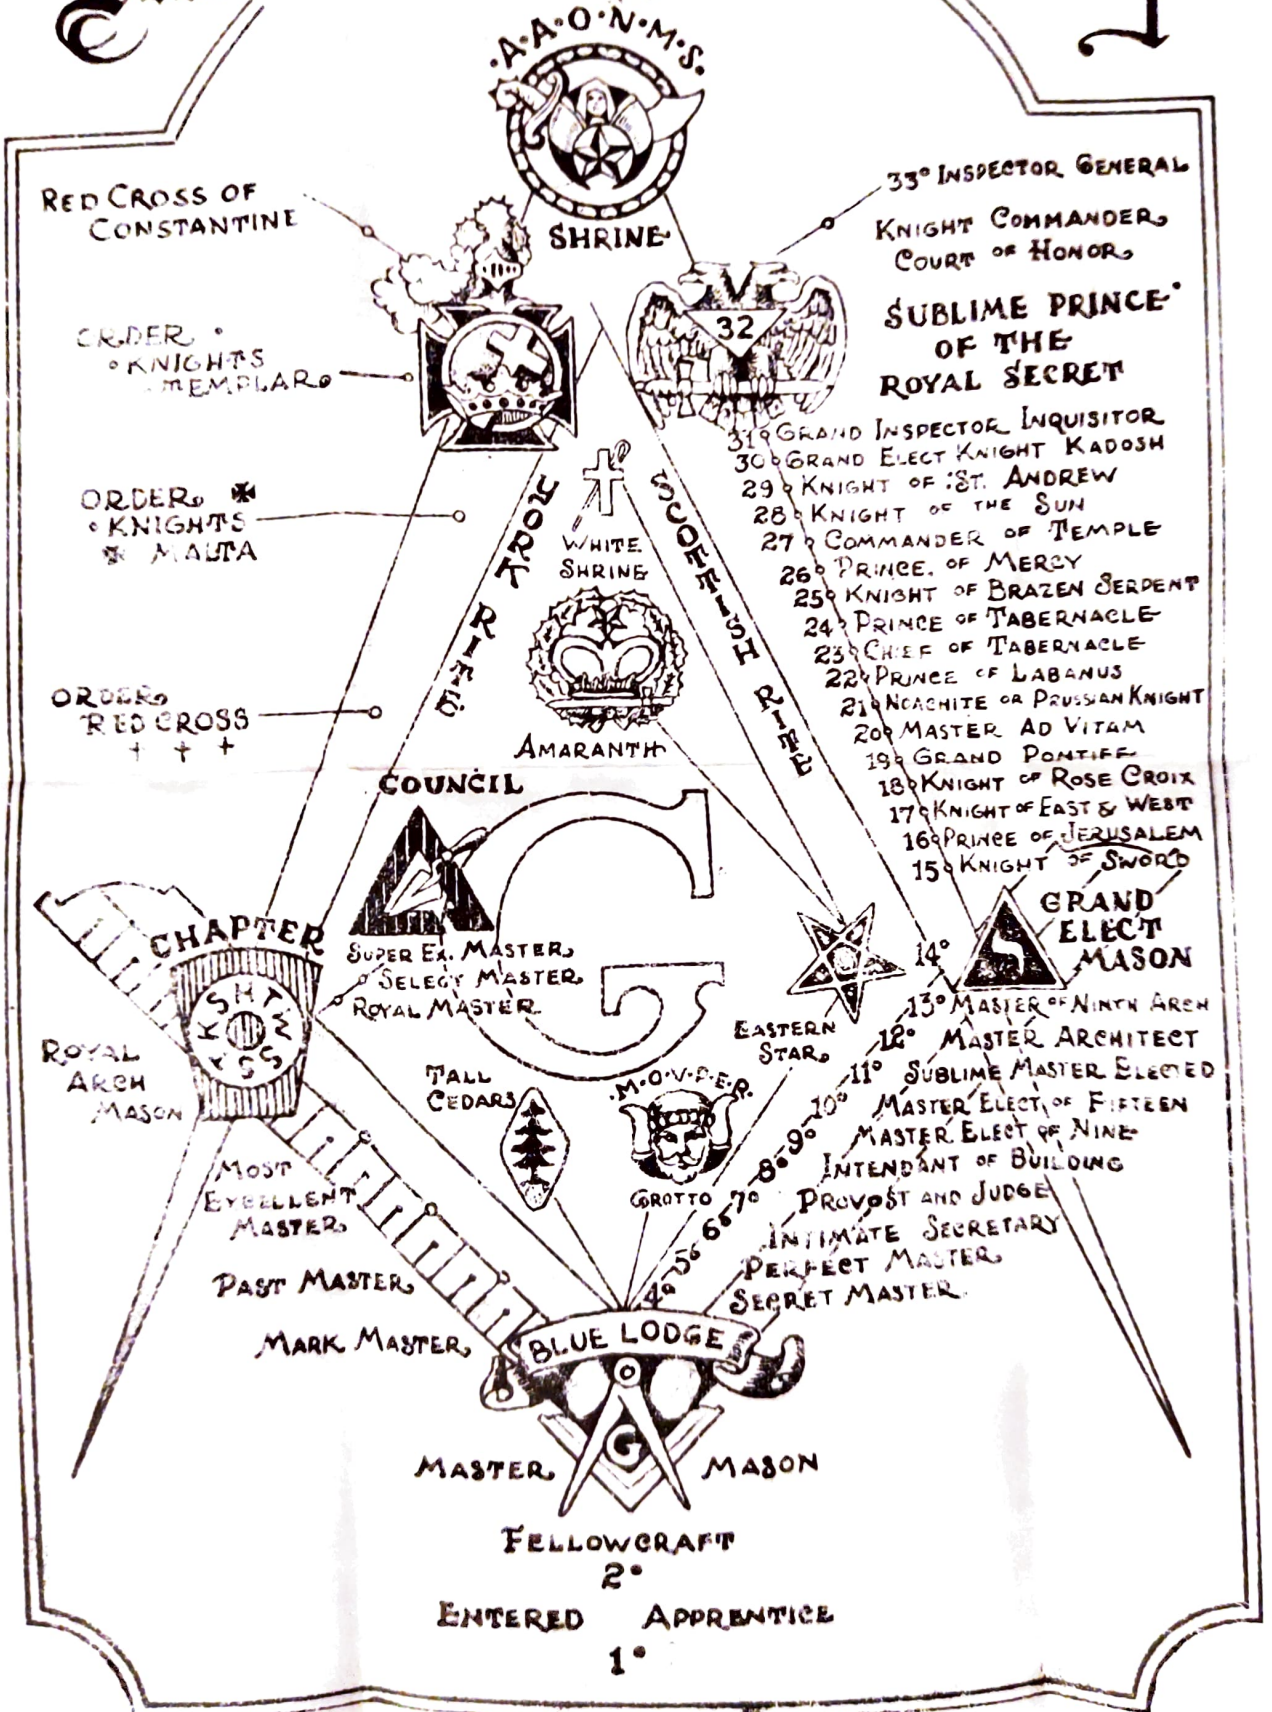 ·A·A·O·N·M·S·
SHRINE
RED CROSS OF
CONSTANTINE
ORDER
KNIGHTS
TEMPLAR
ORDER
KNIGHTS
MALTA
ORDER
RED CROSS
YORK RITE
SCOTTISH RITE
WHITE
SHRINE
AMARANTH
33° INSPECTOR GENERAL
KNIGHT COMMANDER
COURT OF HONOR
32
SUBLIME PRINCE
OF THE
ROYAL SECRET
31° GRAND INSPECTOR INQUISITOR
30° GRAND ELECT KNIGHT KADOSH
29° KNIGHT OF ST. ANDREW
28° KNIGHT OF THE SUN
27° COMMANDER OF TEMPLE
26° PRINCE OF MERCY
25° KNIGHT OF BRAZEN SERPENT
24° PRINCE OF TABERNACLE
23° CHIEF OF TABERNACLE
22° PRINCE OF LABANUS
21° NOACHITE OR PRUSSIAN KNIGHT
20° MASTER AD VITAM
19° GRAND PONTIFF
18° KNIGHT OF ROSE CROIX
17° KNIGHT OF EAST & WEST
16° PRINCE OF JERUSALEM
15° KNIGHT OF SWORD
14° GRAND
ELECT
MASON
13° MASTER OF NINTH ARCH
12° MASTER ARCHITECT
11° SUBLIME MASTER ELECTED
10° MASTER ELECT OF FIFTEEN
9° MASTER ELECT OF NINE
8° INTENDANT OF BUILDING
7° PROVOST AND JUDGE
6° INTIMATE SECRETARY
5° PERFECT MASTER
4° SECRET MASTER
COUNCIL
SUPER EX. MASTER
SELECT MASTER
ROYAL MASTER
G
EASTERN
STAR
CHAPTER
HTWSSTKS
ROYAL
ARCH
MASON
TALL
CEDARS
·M·O·V·P·E·R·
GROTTO
MOST
EXCELLENT
MASTER
PAST MASTER
MARK MASTER
BLUE LODGE
G
MASTER MASON
FELLOWCRAFT
2°
ENTERED APPRENTICE
1°